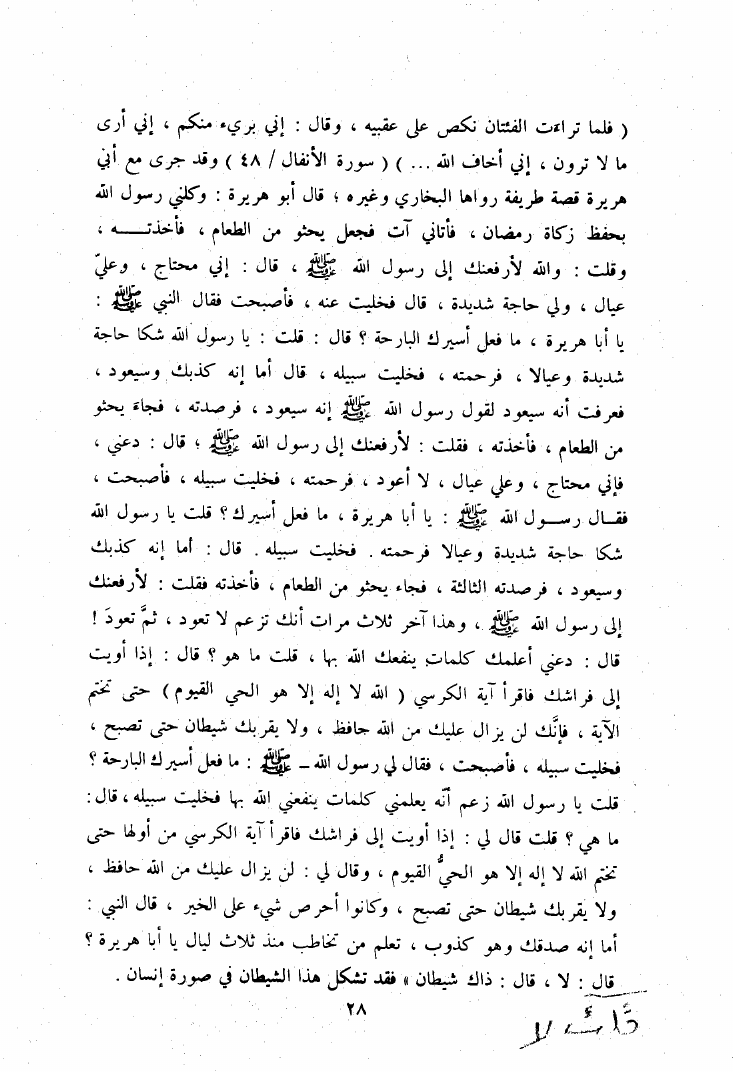 ( فلما تراءت الفئتان نكص على عقبيه ، وقال : إني بريء منكم ، إني أرى
ما لا ترون ، إني أخاف الله ... ) ( سورة الأنفال / ٤٨ ) وقد جرى مع أبي
هريرة قصة طريفة رواها البخاري وغيره ؛ قال أبو هريرة : وكلني رسول الله
بحفظ زكاة رمضان ، فأتاني آت فجعل يحثو من الطعام ، فأخذتـــه ،
وقلت : والله لأرفعنك إلى رسول الله ﷺ ، قال : إني محتاج ، وعليّ
عيال ، ولي حاجة شديدة ، قال فخليت عنه ، فأصبحت فقال النبي ﷺ :
يا أبا هريرة ، ما فعل أسيرك البارحة ؟ قال : قلت : يا رسول الله شكا حاجة
شديدة وعيالا ، فرحمته ، فخليت سبيله ، قال أما إنه كذبك وسيعود ،
فعرفت أنه سيعود لقول رسول الله ﷺ إنه سيعود ، فرصدته ، فجاءَ يحثو
من الطعام ، فأخذته ، فقلت : لأرفعنك إلى رسول الله ﷺ ؛ قال : دعني ،
فإني محتاج ، وعلي عيال ، لا أعود ، فرحمته ، فخليت سبيله ، فأصبحت ،
فقـال رسـول الله ﷺ : يا أبا هريرة ، ما فعل أسيرك ؟ قلت يا رسول الله
شكا حاجة شديدة وعيالا فرحمته . فخليت سبيله . قال : أما إنه كذبك
وسيعود ، فرصدته الثالثة ، فجاء يحثو من الطعام ، فأخذته فقلت : لأرفعنك
إلى رسول الله ﷺ ، وهذا آخر ثلاث مرات أنك تزعم لا تعود ، ثمَّ تعودَ !
قال : دعني أعلمك كلمات ينفعك الله بها ، قلت ما هو ؟ قال : إذا أويت
إلى فراشك فاقرأ آية الكرسي ( الله لا إله إلا هو الحي القيوم ) حتى تختم
الآية ، فإنَّك لن يزال عليك من الله حافظ ، ولا يقربك شيطان حتى تصبح ،
فخليت سبيله ، فأصبحت ، فقال لي رسول الله ـ ﷺ : ما فعل أسيرك البارحة ؟
قلت يا رسول الله زعم أنّه يعلمني كلمات ينفعني الله بها فخليت سبيله ، قال :
ما هي ؟ قلت قال لي : إذا أويت إلى فراشك فاقرأ آية الكرسي من أولها حتى
تختم الله لا إله إلا هو الحيُّ القيوم ، وقال لي : لن يزال عليك من الله حافظ ،
ولا يقربك شيطان حتى تصبح ، وكانوا أحرص شيء على الخير ، قال النبي :
أما إنه صدقك وهو كذوب ، تعلم من تخاطب منذ ثلاث ليال يا أبا هريرة ؟
قال : لا ، قال : ذاك شيطان » فقد تشكل هذا الشيطان في صورة إنسان .
٢٨